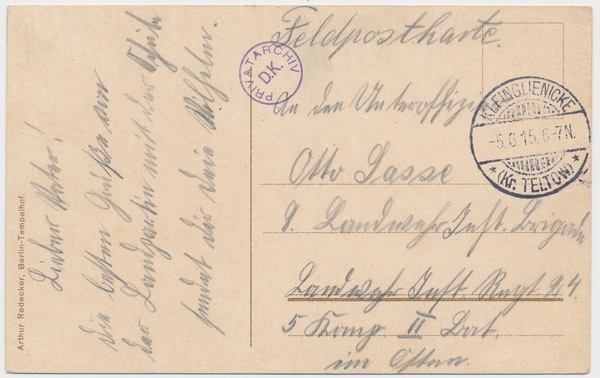 Feldpostkarte.
An den Unteroffizier
Otto Lasse
9. Landwehr Inft. Brigade
Landwehr Inft. Regt 24.
5 Komp II Bat.
im Osten.
Lieber Vater!
Die besten Grüße von
der Landpartie mit der Schule
sendet dir dein Wilhelm.
PRIVATARCHIV
D.K.
KLEINGLIENICKE
-5.6.15.6-7N.
* (Kr. TELTOW) *
Arthur Redecker, Berlin-Tempelhof.